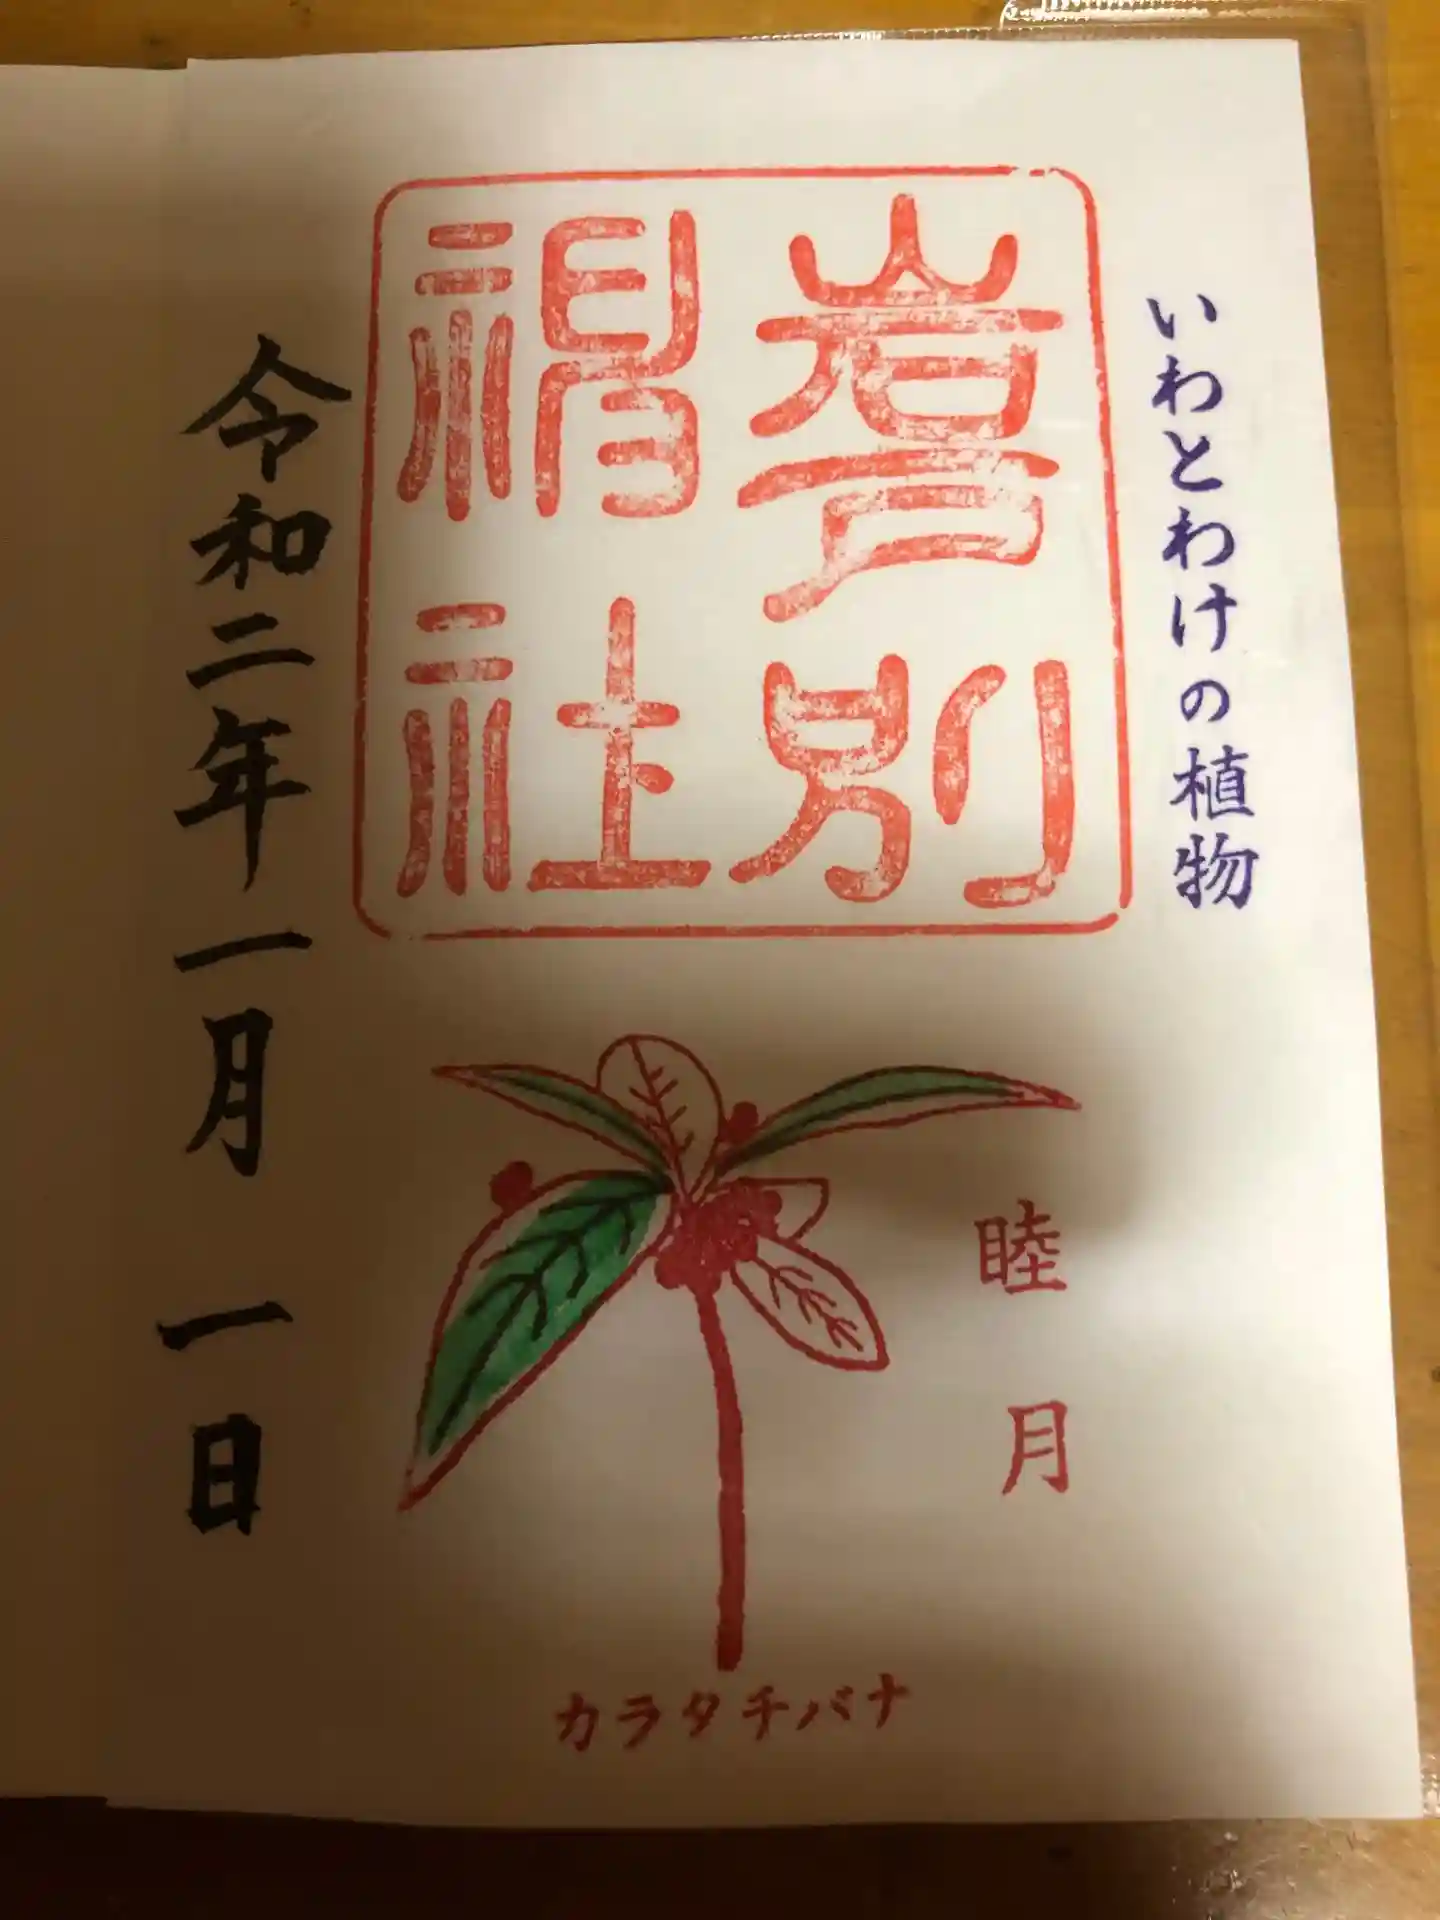 いわとわけの植物
岩戸別
神社
睦月
カラタチバナ
令和二年一月一日